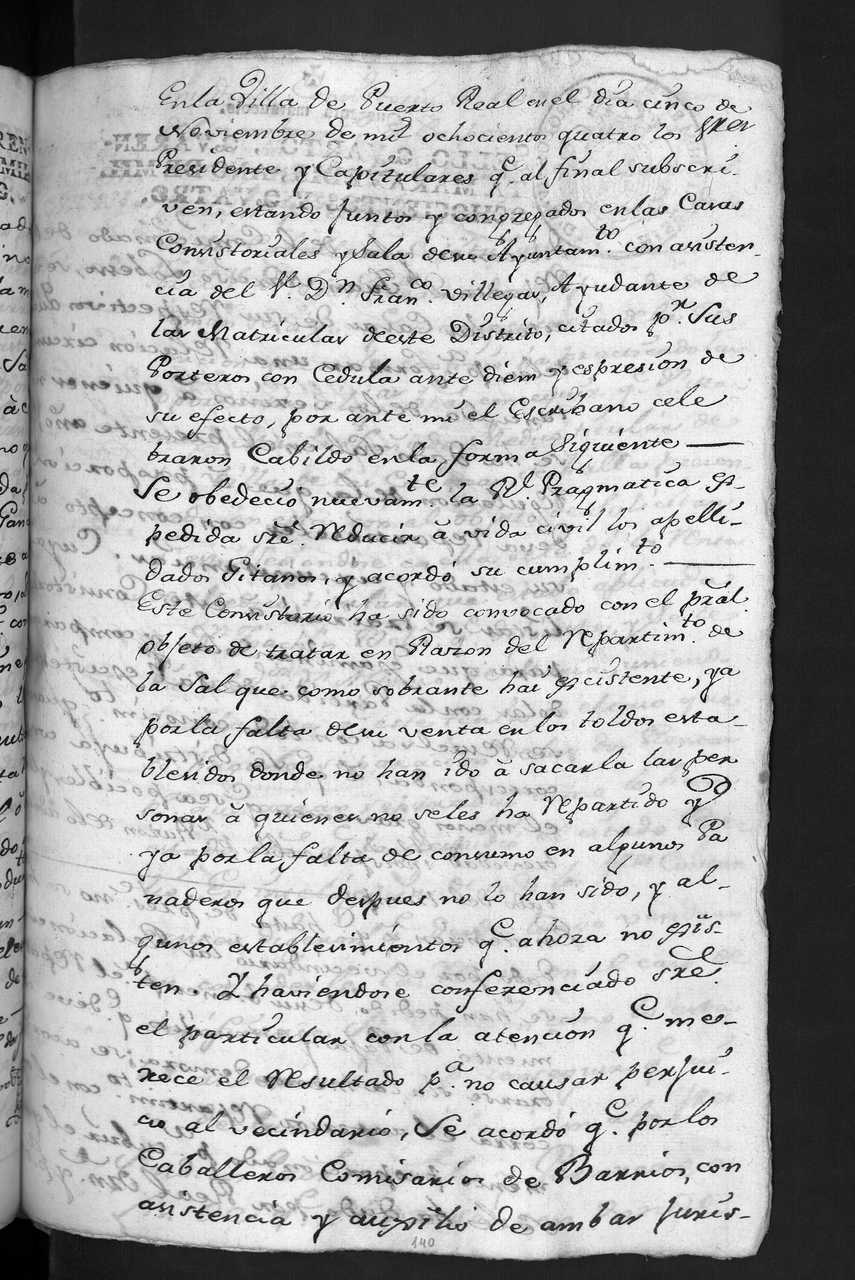 En la Villa de Puerto Real en el dia cinco de
Noviembre de mil ochocientos quatro los Sres
Presidente y Capitulares q.e al final subscri-
ven, estando juntos y congregados en las Casas
Consistoriales y Sala de su Ayuntam.to con asisten-
cia del S.r D.n Fran.co Villegas, Ayudante de
las Matriculas de este Distrito, citados p.r Sus
Porteros con Cedula ante diem y espresion de
su efecto, por ante mi el Escribano cele
braron Cabildo en la forma Siguiente
Se obedeció nuevam.te la R.l Pragmatica es-
pedida sre. Reducir à vida civil los apelli-
dados Gitanos, y acordó su cumplim.to
Este Consistorio ha sido convocado con el pral.
objeto de tratar en Razon del Repartim.to de
la Sal que como sobrante hai escistente, ya
por la falta de su venta en los toldos esta-
blecidos donde no han ido à sacarla las per
sonas à quienes no seles ha Repartido y
ya por la falta de consumo en algunos Pa
naderos que despues no lo han sido, y al-
gunos establecimientos q.e ahora no exis-
ten Y haviendose conferenciado sre.
el particular con la atencion q.e me-
rece el Resultado p.a no causar perjui-
cio al vecindario, Se acordó q.e por los
Caballeros Comisarios de Barrios, con
asistencia y auxilio de ambas Juris-
140